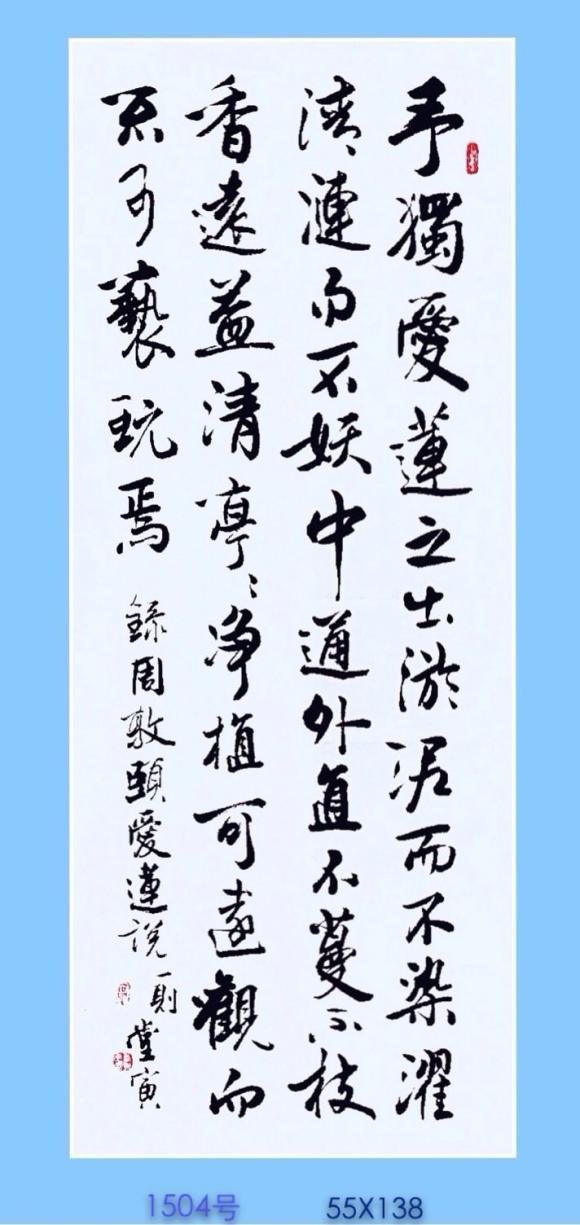 予獨愛蓮之出淤泥而不染濯
清漣而不妖中通外直不蔓不枝
香遠益清亭〻净植可遠觀而
不可褻玩焉
錄周敦頤愛蓮説
一則
堂寅
1504号
55X138